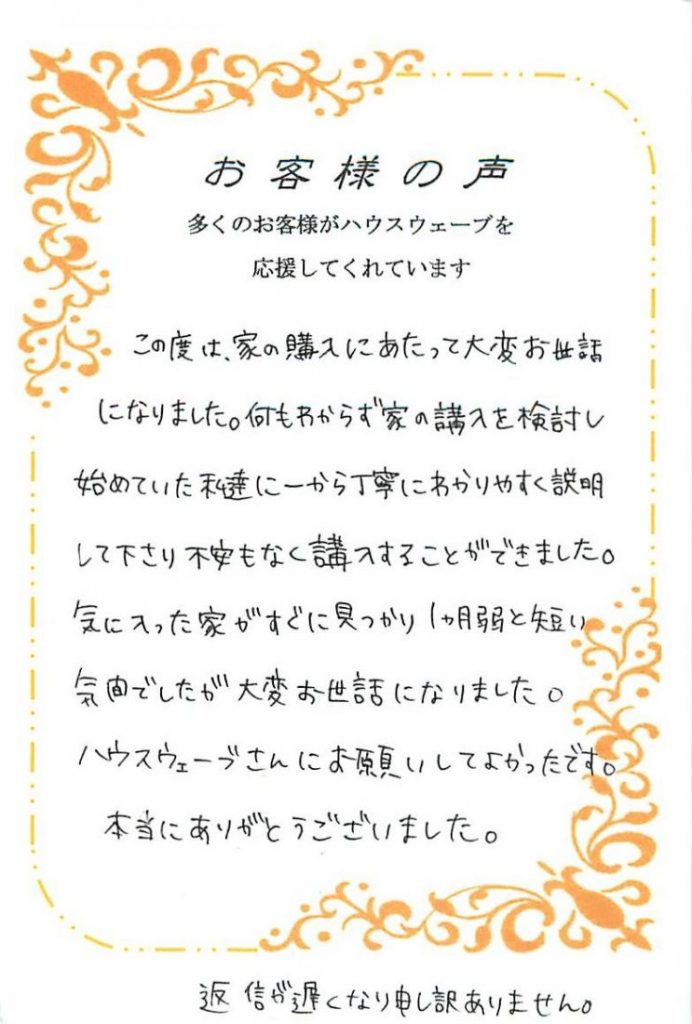 お客様の声
多くのお客様がハウスウェーブを
応援してくれています
この度は、家の購入にあたって大変お世話
になりました。何もわからず家の講入を検討し
始めていた私達に一から丁寧にわかりやすく説明
して下さり不安もなく講入することができました。
気に入った家がすぐに見つかり1ヵ月弱と短い
気間でしたが大変お世話になりました。
ハウスウェーブさんにお願いしてよかったです。
本当にありがとうございました。
返信が遅くなり申し訳ありません。